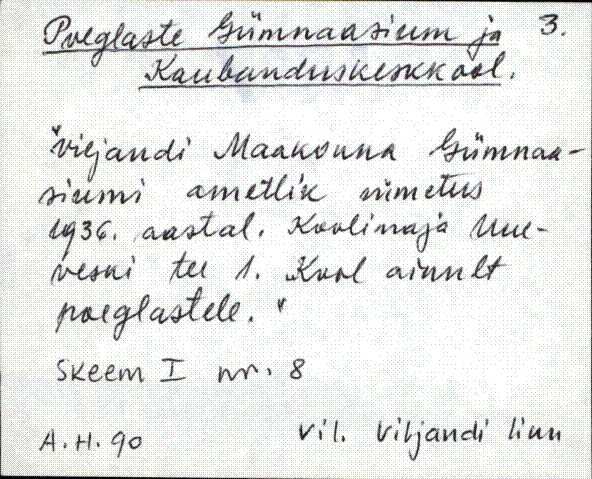 Poeglaste Gümnaasium ja 3.
Kaubanduskeskkool.
"Viljandi Maakonna Gümnaa-
siumi ametlik nimetus
1936. aastal. Koolimaja Uue-
veski tee 1. Kool ainult
poeglastele."
Skeem I nr. 8
A.H. 90 Vil. Viljandi linn